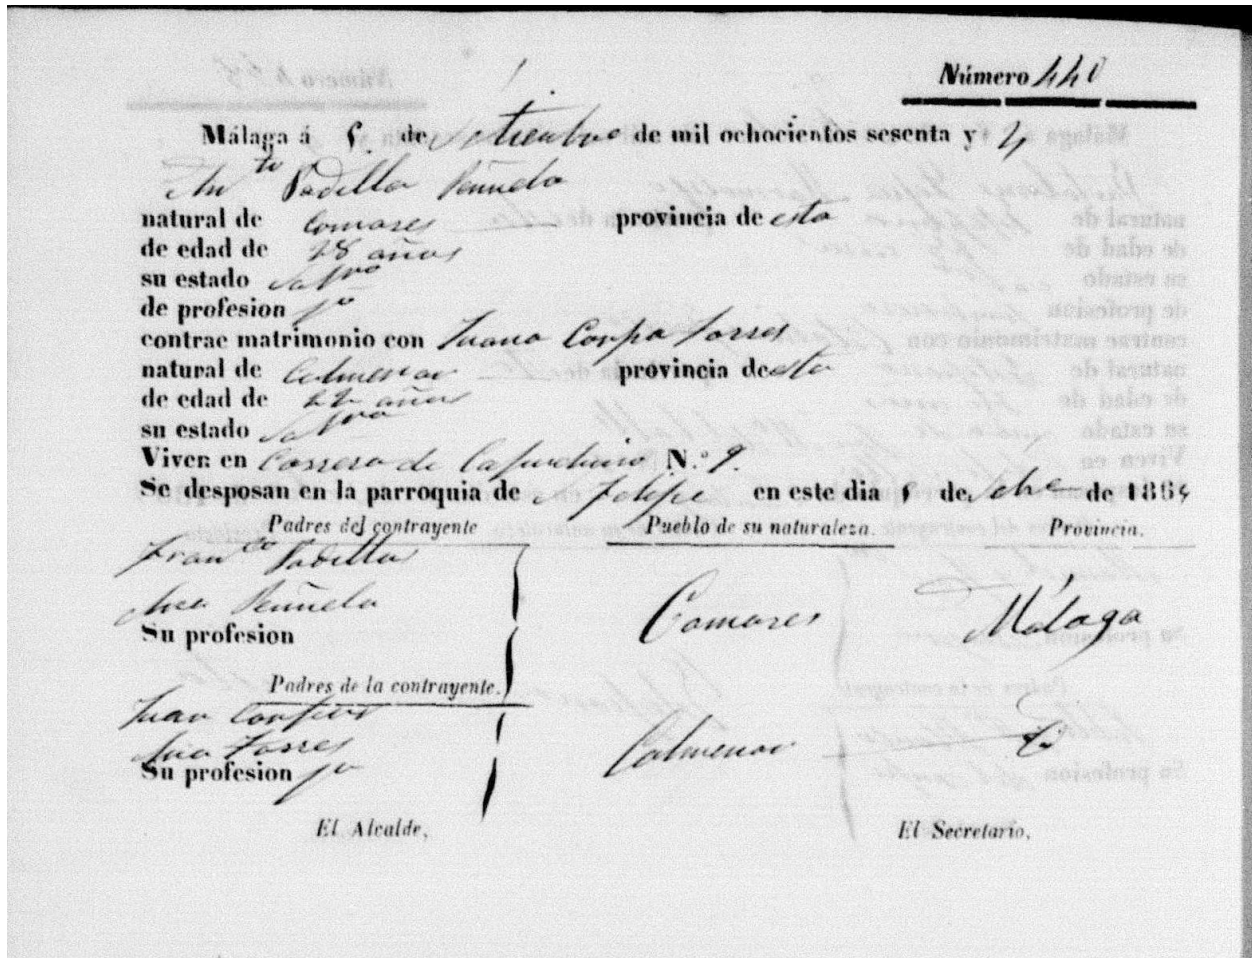 Número 440
Málaga á 5 de setiembre de mil ochocientos sesenta y 4
Anto Padilla Peñuela
natural de Comares provincia de esta
de edad de 28 años
su estado
de profesion jo
contrae matrimonio con Juana Corpa Torres
natural de Colmenar provincia de esta
de edad de 22 años
su estado
Viven en Carrera de Capuchinos N.º 9.
Se desposan en la parroquia de S Felipe en este dia 5 de Sbre de 1864
Padres del contrayente Pueblo de su naturaleza. Provincia.
Franco Padilla
Ana Peñuela Comares Málaga
Su profesion
Padres de la contrayente.
Juan
Ana Torres Colmenar
Su profesion jo
El Alcalde, El Secretario,